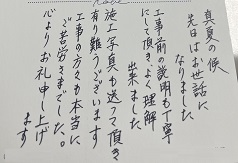 真夏の候
先日はお世話に
なりました
工事前の説明も丁寧
にして頂き、よく理解
出来ました
施工写真も送って頂き
有り難うございます
工事の方々も本当に
ご苦労さまでした。
心よりお礼申し上げ
ます